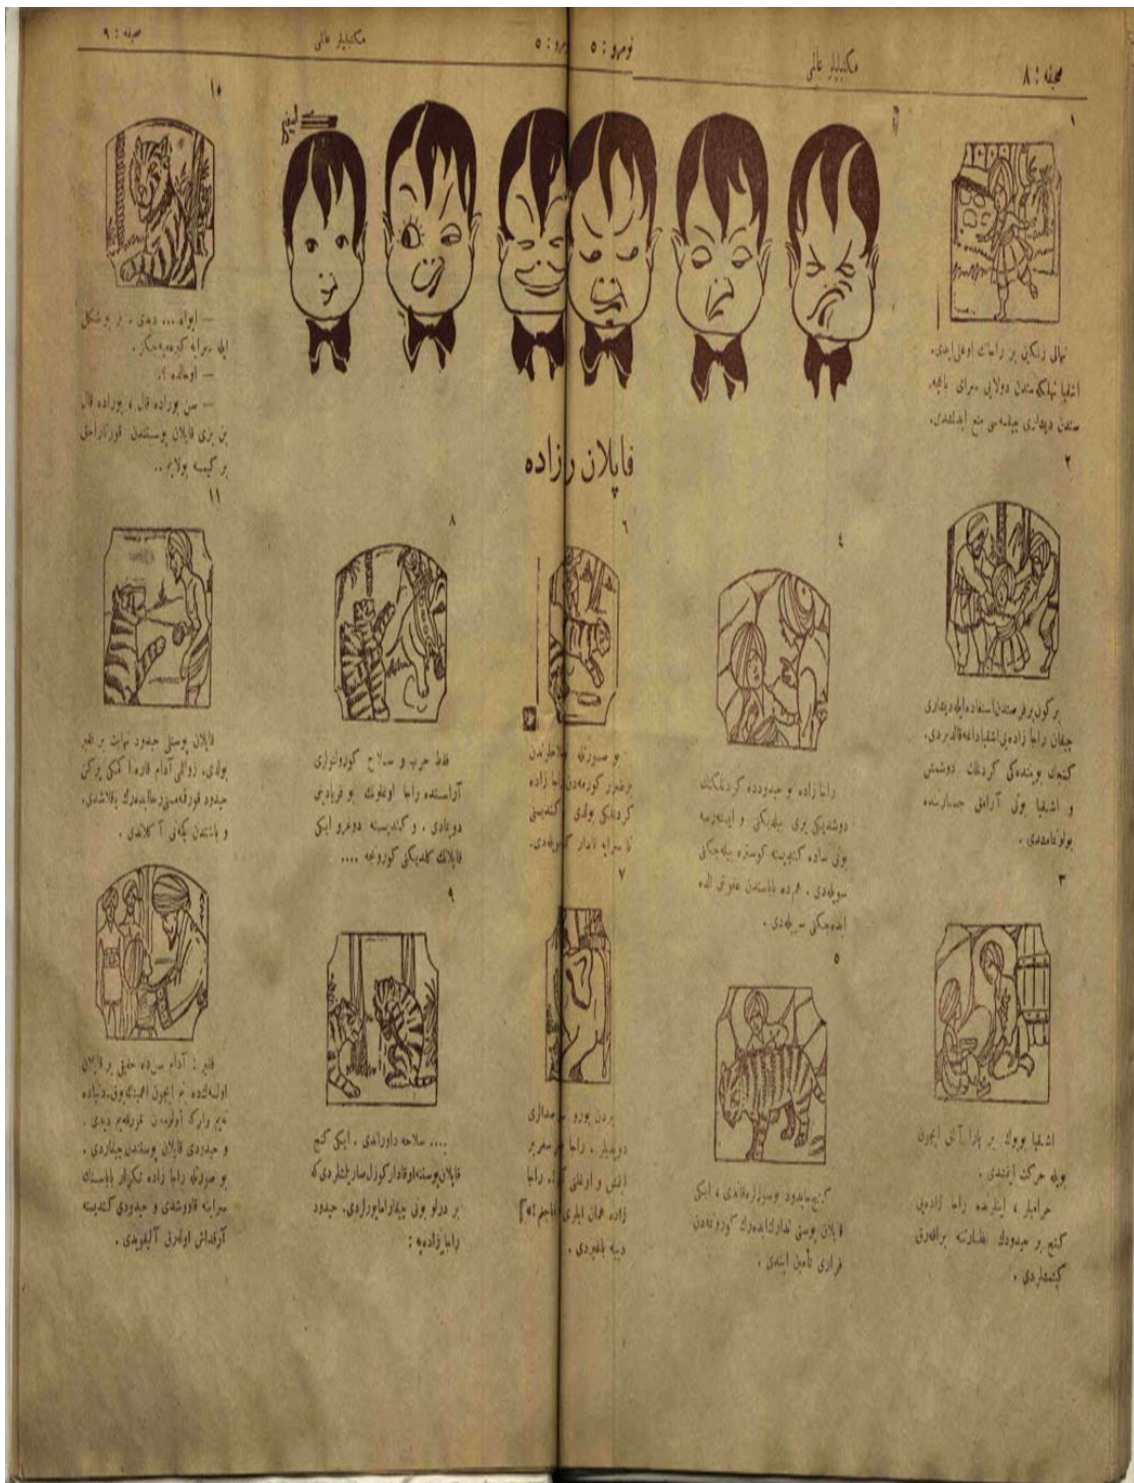 صحيفه : ٨
مكتبليلر عالمى
نومرو : ٥
نومرو : ٥
مكتبليلر عالمى
صحيفه : ٩
قاپلان رازاده
١
نهالى زنكين بر راجانك اوغلى ايدى.
اشقيا تهلكه سندن دولايى سراى باغچه
سندن ديشارى چيقمه سى منع ايدلمشدى.
٢
بر كون بر فرصتدن استفاده ايله ديشارى
چيقان راجا زاده يى اشقيا داغه قالديردى.
كنجك بويننده كى كردنلك دوشمش
و اشقيا بونى آرامق جسارتنده
بولونمامشدى.
٣
اشقيا بويوك بر پارا آلمق ايچون
بويله حركت ايتمشدى.
حراميلر ، اينلرنده راجا زاده يى
كنج بر حيدودك نظارتنه براقه رق
كيتمشلردى.
٤
راجا زاده بو حيدوده كردنلكنك
دوشديكى يرى بيلديكنى و ايسترسه
بونى ساده كنديسنه كوستره بيله جكنى
سويله دى. هم ده باباسندن عفونى الده
ايده جكنى سويله دى.
٥
كنج حيدود سوزلره قاندى ، ايكى
قاپلان پوستى تدارك ايده رك كورونمه دن
فرارى تأمين ايتدى.
٦
بو صورتله
كورمه دن راجا زاده
كردنلكى بولدى كنديسنى
تا سرايه قادار
٧
بردن بورو
دويديلر. راجا سفر بر
ايتمش و اوغلنى راجا
زاده همان ايلرى
ديه باغيردى.
٨
فقط حرب و سلاح كورولتولرى
آراسنده راجا اوغلونك بو فريادينى
دويمادى. و كنديسنه دوغرو ايكى
قاپلانك كلديكنى كورونجه ....
٩
.... سلاحه داوراندى. ايكى كنج
قاپلان پوستنه او قادار كوزل صاريلمشلردى كه
بر درلو بونى چيقارامايورلردى. حيدود
راجا زاده يه :
١٠
— ايواه ... ديدى. بز بو شكل
ايله سرايه كيره ميه جكز.
— او حالده ؟.
— سن بوراده قال ، بوراده قال
بن بزى قاپلان پوستندن قورتاراجق
بر كيمسه بولايم ..
١١
قاپلان پوستلى حيدود نهايت بر فقير
بولدى. زواللى آدام قارا
حيدود قورقمه مسنى رجا ايده رك ياقلاشدى.
و باشندن كچنى آكلاتدى.
فقير : آدام سن ده حقيقى بر قاپلان
اولسه ك ده بنم ايچون اهميتك يوق. دنياده
نه يم وار كه قورقه يم ديدى.
و حيدودى قاپلان پوستندن چيقاردى.
بو صورتله راجا زاده تكرار باباسنك
سراينه قاووشدى و حيدودى كنديسنه
آرقداش اوله رق آليقويدى.